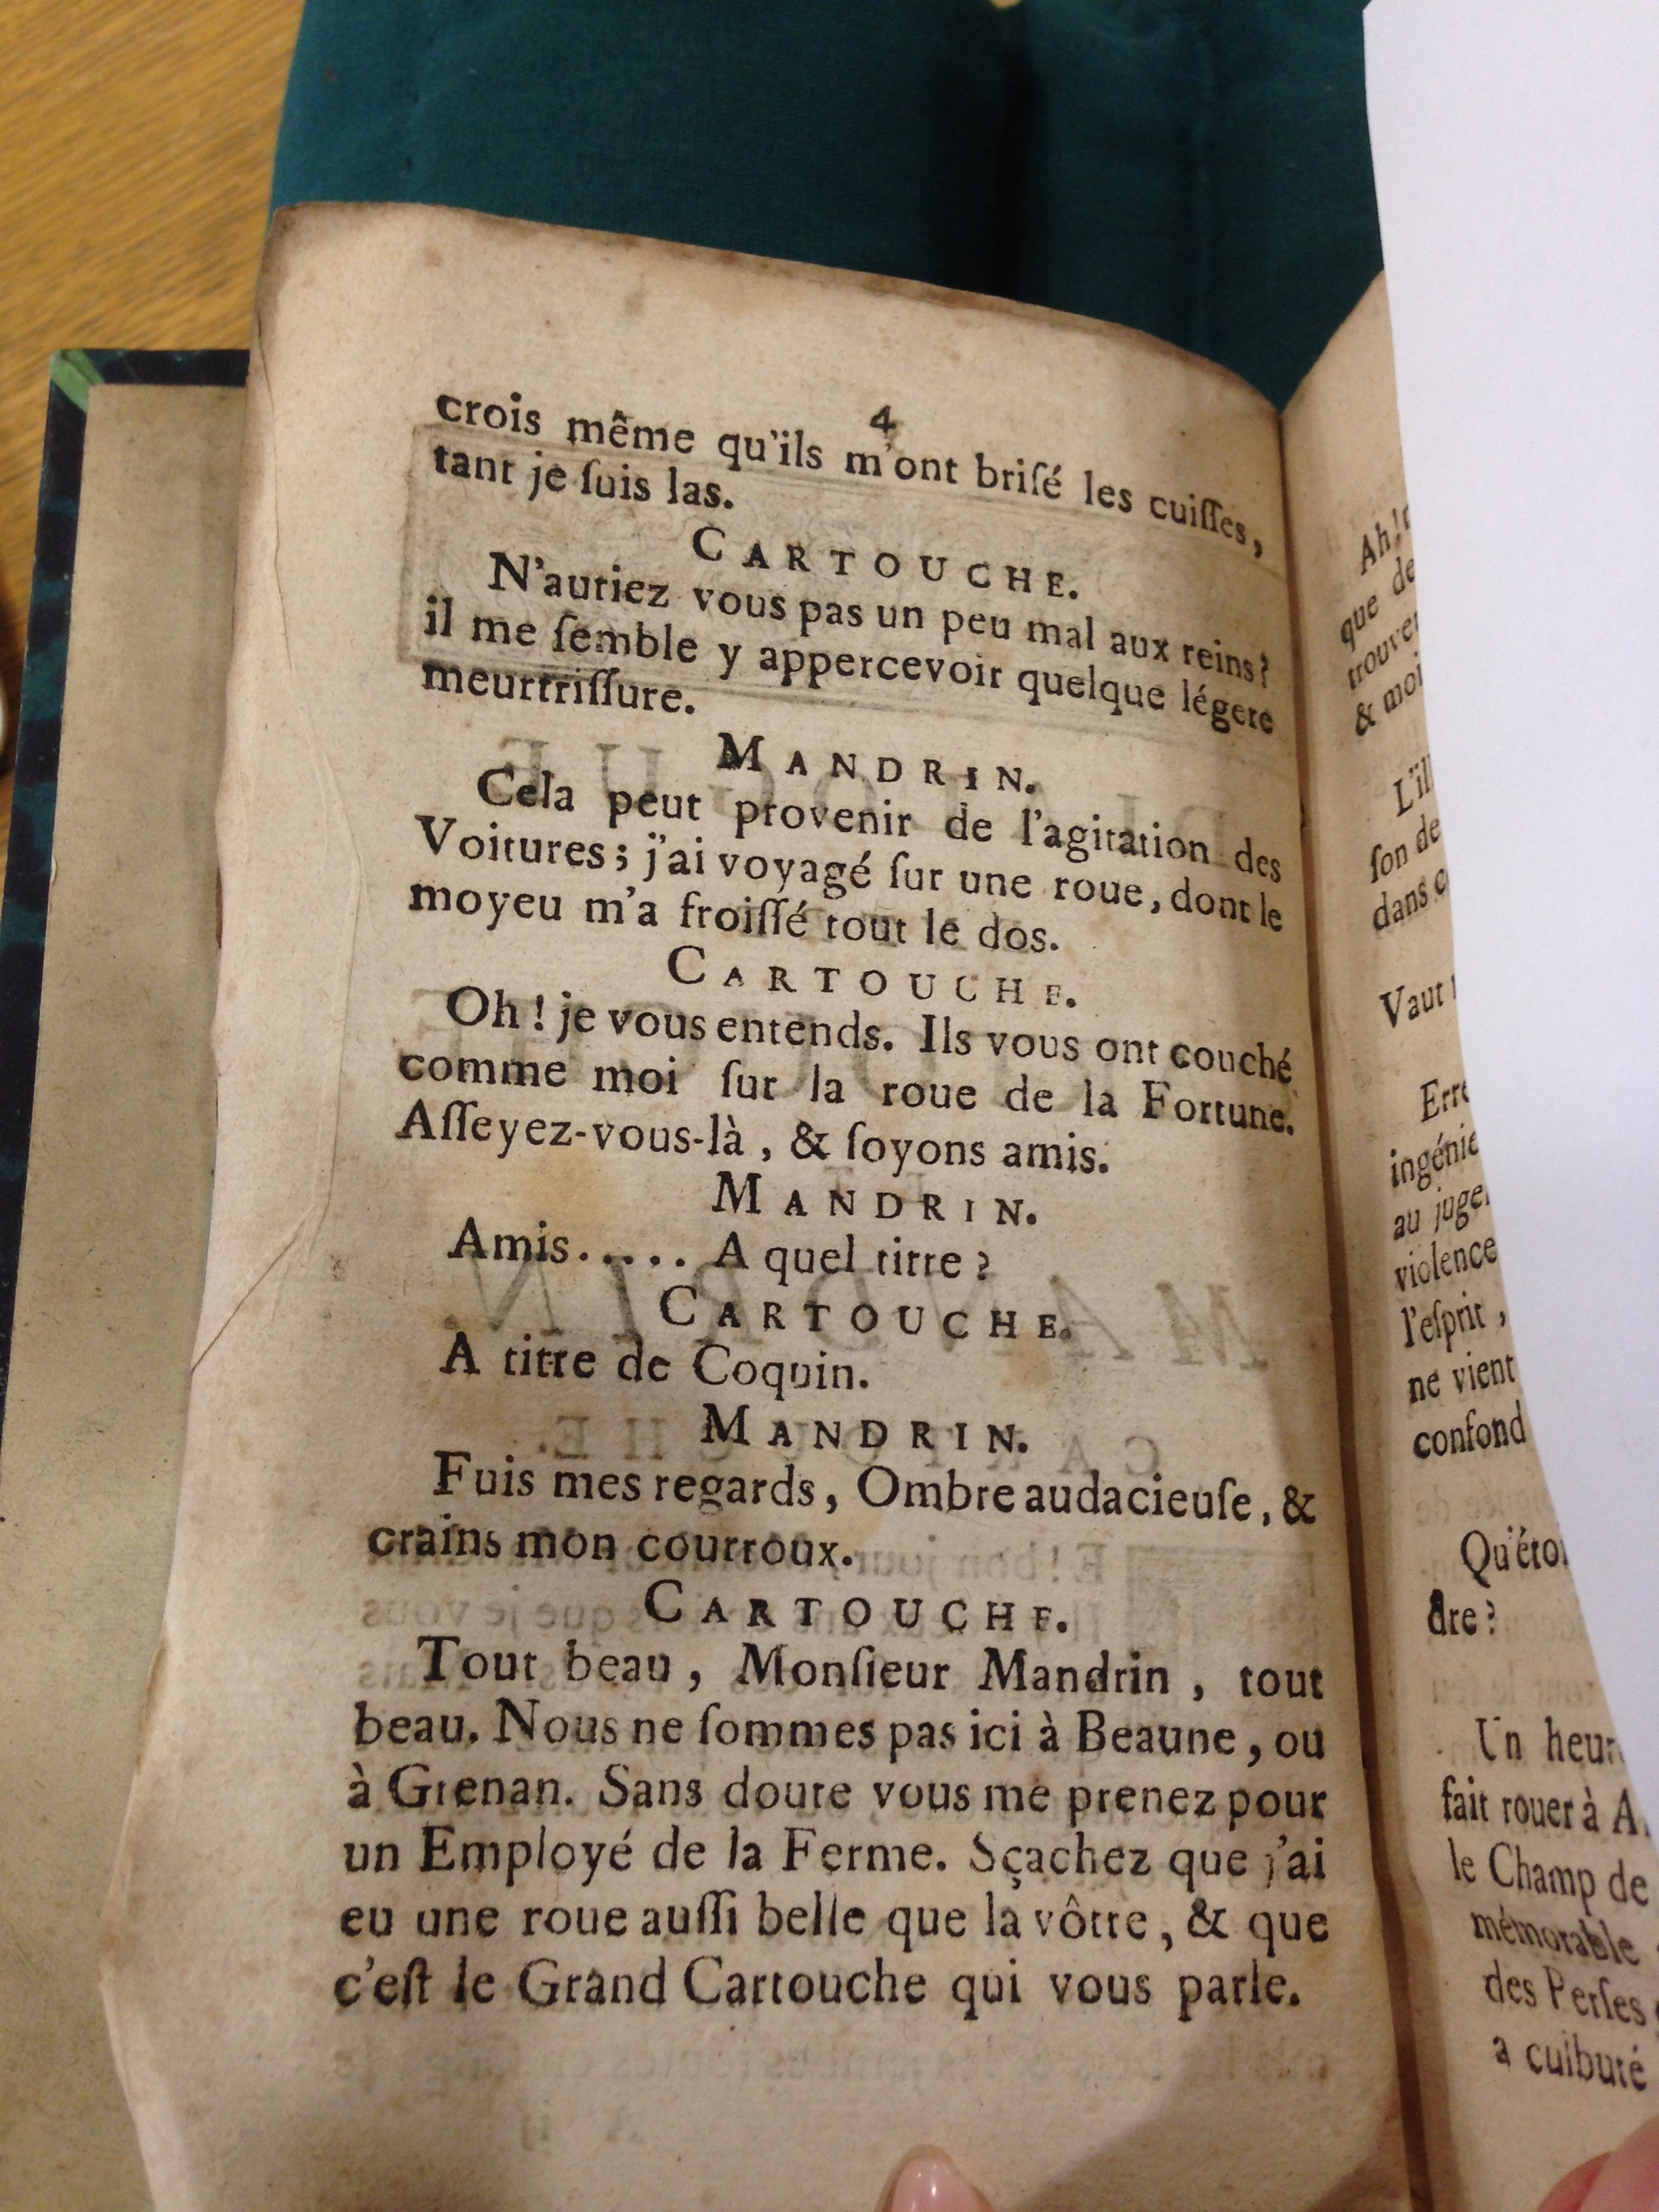 4
crois même qu'ils m'ont briſé les cuiſſes,
tant je ſuis las.
CARTOUCHE.
N'auriez vous pas un peu mal aux reins?
il me ſemble y appercevoir quelque légere
meurtriſſure.
MANDRIN.
Cela peut provenir de l'agitation des
Voitures; j'ai voyagé ſur une roue, dont le
moyeu m'a froiſſé tout le dos.
CARTOUCHE.
Oh! je vous entends. Ils vous ont couché
comme moi ſur la roue de la Fortune.
Aſſeyez-vous-là, & ſoyons amis.
MANDRIN.
Amis..... A quel titre?
CARTOUCHE.
A titre de Coquin.
MANDRIN.
Fuis mes regards, Ombre audacieuſe, &
crains mon courroux.
CARTOUCHE.
Tout beau, Monſieur Mandrin, tout
beau. Nous ne ſommes pas ici à Beaune, ou
à Grenan. Sans doute vous me prenez pour
un Employé de la Ferme. Sçachez que j'ai
eu une roue auſſi belle que la vôtre, & que
c'eſt le Grand Cartouche qui vous parle.
Ah!
que de
& moi
ſon de
dans
Vaut
au
violence
l'eſprit,
ne vient
confond
dre?
Un
fait rouer à A
le Champ de
mémorable
des Perſes
a culbuté